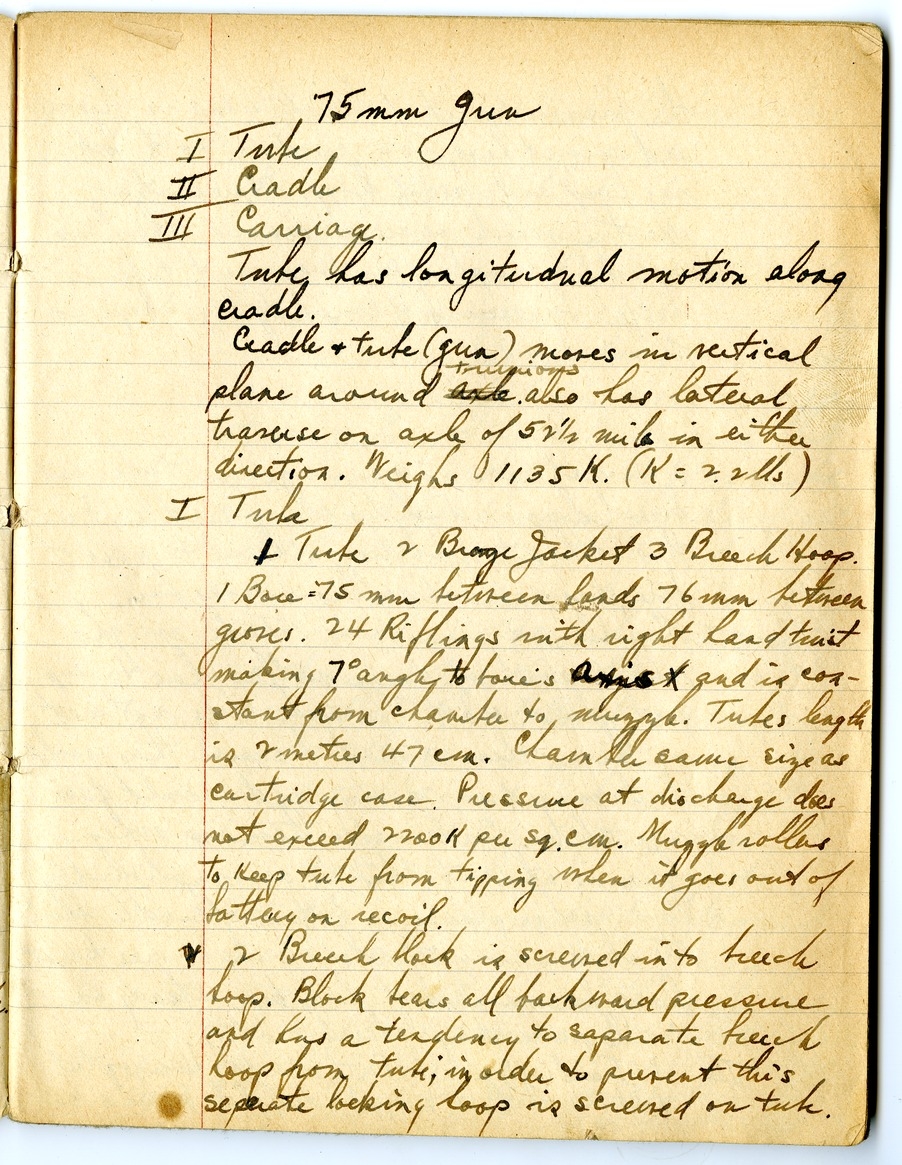 75 mm Gun
I Tube
II Cradle
III Carriage.
Tube has longitudual motion along
cradle.
Cradle + tube (gun) moves in vertical
trunions
plane around axle. also has lateral
traverse on axle of 52½ mils in either
direction. Weighs 1135 K. (K = 2.2 lbs)
I Tube
1 Tube 2 Bronze Jacket 3 Breech Hoop.
1 Bore = 75 mm between lands 76 mm between
groves. 24 Riflings with right hand twist
making 7° angle to bore's axis x and is con-
stant from chamber to muzzle. Tubes length
is 2 metres 47 cm. Chamber same size as
cartridge case. Pressure at discharge does
not exceed 2200 K per sq. cm. Muzzle rollers
to keep tube from tipping when it goes out of
battery on recoil.
2 Breech block is screwed into breech
hoop. Block bears all backward pressure
and has a tendency to saparate breech
hoop from tube; in order to prevent this
seperate locking hoop is screwed on tube.